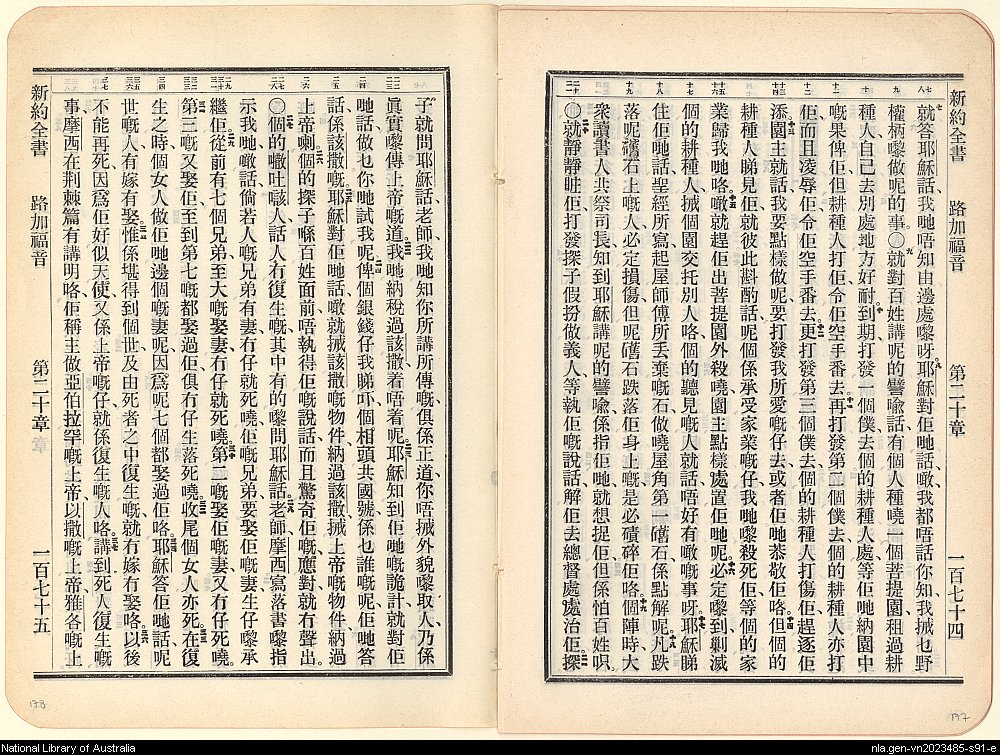 新約全書 路加福音 第二十章 一百七十四
就答耶穌話我哋唔知由邊處嚟呀耶穌對佢哋話噉我都唔話你知我㧜乜野
權柄嚟做呢的事〇就對百姓講呢的譬喻話有個人種嘵一個菩提園租過耕
種人自己去別處地方好耐到期打發一個僕去個的耕種人處等佢哋納園中
嘅果俾佢但耕種人打佢令佢空手番去再打發第二個僕去個的耕種人亦打
佢而且凌辱佢令佢空手番去更打發第三個僕去個的耕種人打傷佢趕逐佢
添園主就話我要點樣做呢要打發我所愛嘅仔去或者佢哋恭敬佢咯但個的
耕種人睇見佢就彼此斟酌話呢個係承受家業嘅仔我哋嚟殺死佢等個的家
業歸我哋咯噉就趕佢出菩提園外殺嘵園主點樣處置佢哋呢必定嚟到剿滅
個的耕種人㧜個園交托別人咯個的聽見嘅人就話唔好有噉嘅事呀耶穌睇
住佢哋話聖經所寫起屋師傅所丟棄嘅石做嘵屋角第一磶石係點解呢凡跌
落呢磶石上嘅人必定損傷但呢磶石跌落佢身上嘅是必磧碎佢咯個陣時大
衆讀書人共祭司長知到耶穌講呢的譬喩係指佢哋就想捉佢但係怕百姓呮
〇就靜靜睇佢打發探子假扮做義人等執佢嘅說話解佢去總督處處治佢探
子就問耶穌話老師我哋知你所講所傳嘅俱係正道你唔㧜外貌嚟取人乃係
眞實嚟傳上帝嘅道我哋納稅過該撒着唔着呢耶穌知到佢哋嘅詭計就對佢
哋話做乜你哋試我呢俾個銀錢仔我睇吓個相頭共國號係乜誰嘅呢佢哋答
話係該撒嘅耶穌對佢哋話噉就㧜該撒嘅物件納過該撒㧜上帝嘅物件納過
上帝喇個的探子喺百姓面前唔執得佢嘅說話而且驚奇佢嘅應對就冇聲出
〇個的撒吐該人話人冇復生嘅其中有的嚟問耶穌話老師摩西寫落書嚟指
示我哋噉話倘若人嘅兄弟有妻冇仔就死嘵佢嘅兄弟要娶佢嘅妻生仔嚟承
繼佢從前有七個兄弟至大嘅娶妻冇仔就死嘵第二嘅娶佢嘅妻又冇仔死嘵
第三嘅又娶佢至到第七嘅都娶過佢俱冇仔生落死嘵收尾個女人亦死在復
生之時個女人做佢哋邊個嘅妻呢因爲呢七個都娶過佢咯耶穌答佢哋話呢
世嘅人有嫁有娶惟係堪得到個世及由死者之中復生嘅就冇嫁冇娶咯以後
不能再死因爲佢好似天使又係上帝嘅仔就係復生嘅人咯講到死人復生嘅
事摩西在荆棘篇有講明咯佢稱主做亞伯拉罕嘅上帝以撒嘅上帝雅各嘅上
新約全書 路加福音 第二十章 一百七十五
178
177
National Library of Australia
nla.gen-vn2023485-s91-e